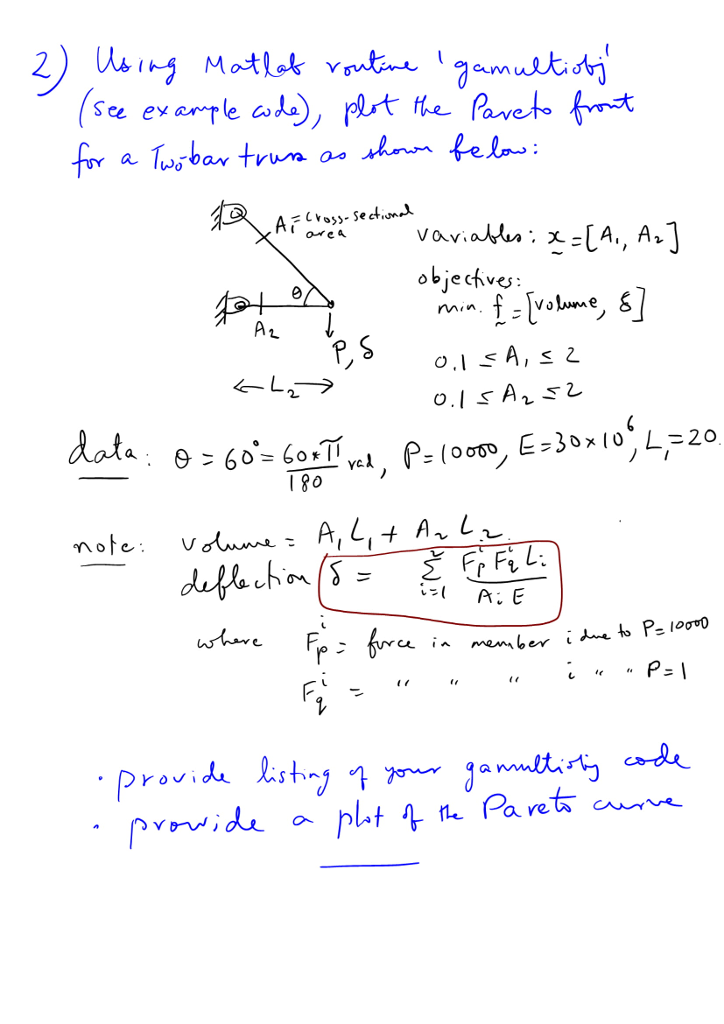 2) Using Matlab routine 'gamultiobj'
(see example code), plot the Pareto front
for a Two-bar truss as shown below:
A₁ = cross-sectional
area
θ
A₂
P, δ
L₂
variables: x = [A₁, A₂]
objectives:
min. f = [volume, δ]
0.1 ≤ A₁ ≤ 2
0.1 ≤ A₂ ≤ 2
data: θ = 60° = 60*π/180 rad, P = 10000, E = 30×10⁶, L₁ = 20.
note: volume = A₁L₁ + A₂L₂.
deflection δ = Σ_{i=1}^{2} F_p^i F_q^i L_i / A_i E
where F_p^i = force in member i due to P = 10000
F_q^i = " " " i " " P = 1
• provide listing of your gamultiobj code
• provide a plot of the Pareto curve